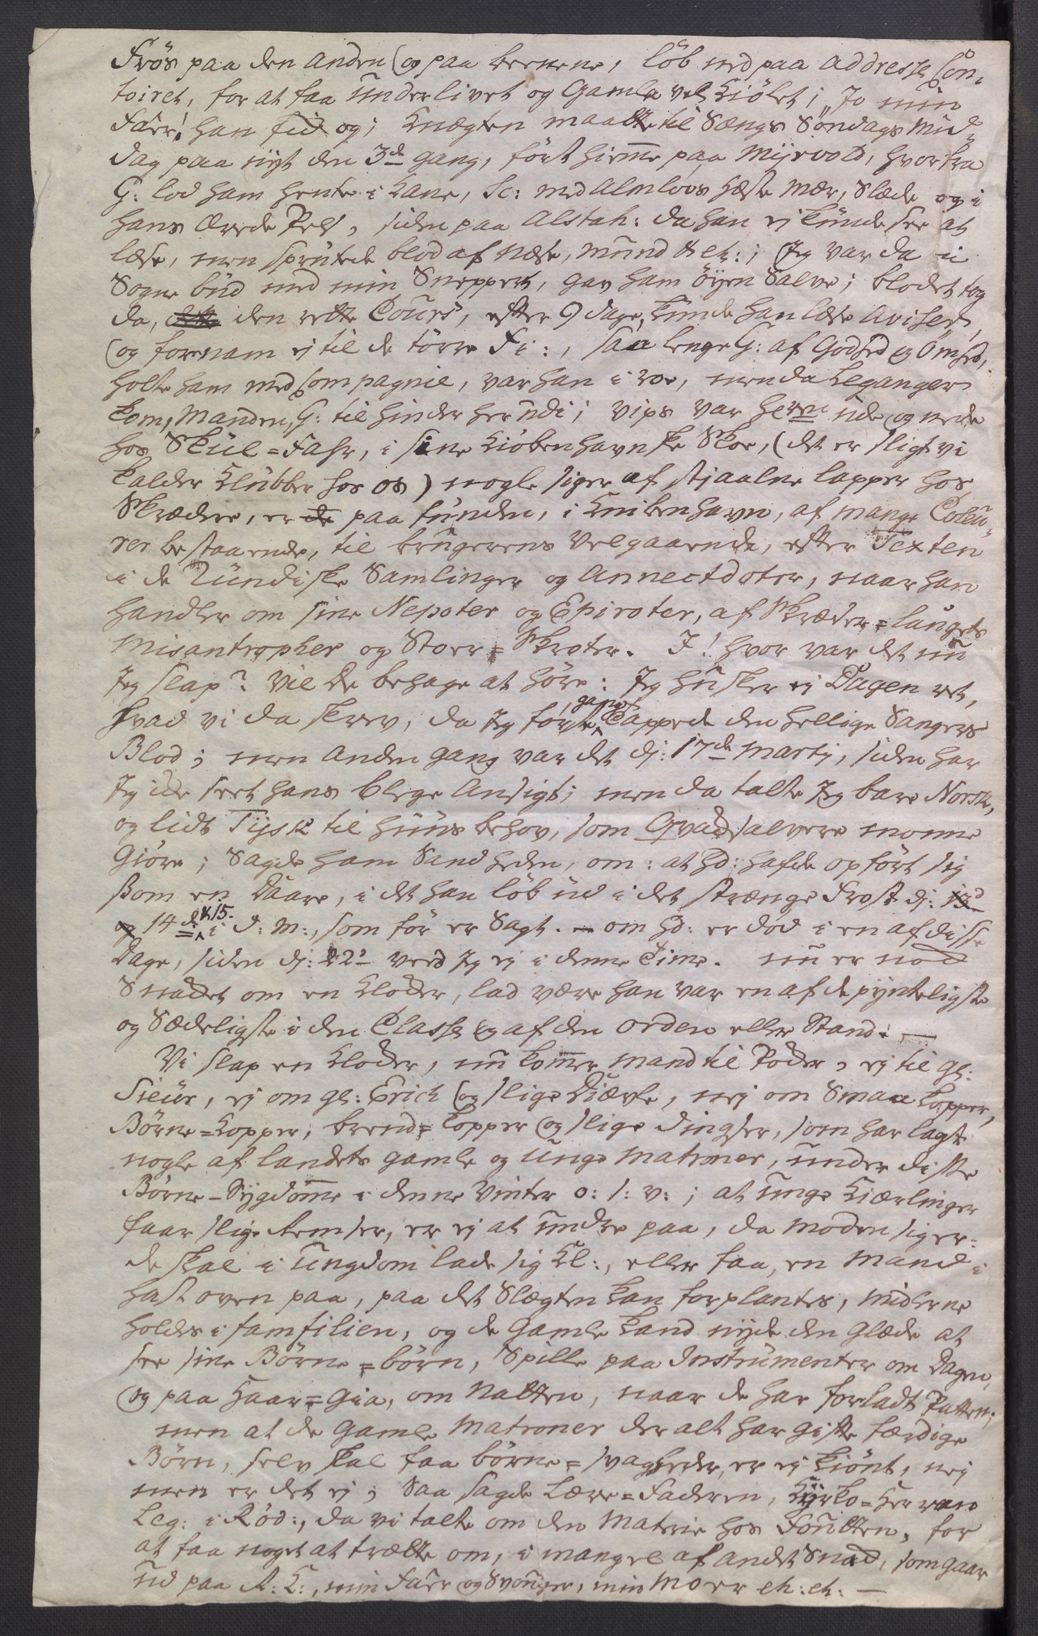 Frøs paa den anden (og paa beenene, løb ned paa addresse Con-
toiret, for at faa underlivet og Gamle vel kiølet; "Jo min
Faer! han fik og; Knægten maatte til Sængs Søndags Mid-
dag paa nyt den 3de gang, ført hiem paa Myrvold, hvorfra
G: lod ham hente i Kane, Sc: med Almløvs hæste Mær, Slæde og i
hans Pels, siden paa Alstah: da han ej kunde see at
læse, men sprutede blod af næse, mund etc:; Jeg var da i
Sogne bud med min Sneppert, gav ham Øyen Salve; blodet tog
da, den rette Cours, efter 9 dage, kunde han læse Aviser,
(og fornam ej til de tørre Fi:, saa lenge G: af Godhed og Omhed,
holte ham med Compagnie, var han i roe, men da Leganger
kom, Manden, G: til hinder herudi; vips var herre ude og nede
hos Skul=Fahr, i sine Kiøbenhavnske Skoe, (det er sligt vi
kalder Klubber hos os) nogle siger af stjaalne lapper hos
Skrædere, er paa funden, i Knibenhavn, af mange Coleu-
rer bestaaende, til brugerens Velgaaende, efter Texten
i de Zundiske Samlinger og Annectdoter, naar han
handler om sine Nepoter og Epiroter, af Skræder=laugets
Misantropher og Storr=Skroter. I! hvor var det nu
Jeg slap? Vil De behage at høre: Jeg husker ej Dagen ret,
hvad vi da skrev, da jeg første gang tappede den hellige Sangers
Blod; men anden gang var det dj: 17de Martij, siden har
Jeg ikke seet hans blege Ansigt; men da talte Jeg bare Norsk,
og lidt Tysk til huus behov, som Qvadsalvere monne
Giøre; Sagde ham Sandheden, om: at hd: hafde opført sig
som en Daare, i det han løb ud i det strænge Frost dj:
14de & 15. i d: M:, som før er Sagt. – om hd: er død i en af disse
Dage, siden dj: 22de veed jeg ej i denne Time. nu er nok
Snakket om en Kloder, lad være han var en af de pynteligste
og Sædeligste i den Classe (og af den orden eller Stand: —
Vi slap en Kloder, nu kommer mand til Poder, ej til Gl:
Sieur, ej om gl: Erich (og slige Diævle, nej om Smaa kopper,
Børne=Kopper, brend=kopper (og slige Dingser, som har lagt
nogle af landets gamle og unge Matroner, under disse
Børne-Sygdomme i denne Vinter o: s: v:; at unge Kiærlinger
faar slige Remser, er ej at undre paa, da moden siger:
de skal i ungdom lade sig Kl:, eller faa, en Mand i
hast oven paa, paa det Slægten kan forplantes, midlerne
holdes i famfilien, og de Gamle kand nyde den Glæde at
see sine Børne=børn, Spille paa Instrumenter om Dagen,
(og paa Haar=Gia, om Natten, naar de har forladt Patten;
men at de Gamle Matroner der alt har gifte færdige
Børn, selv skal faa børne=svagheder, er ej kiønt, nej
men er det ej; Saa sagde Lære=Faderen, Kyrko=Herren
Leg: i Rød:, da vi talte om den Materie hos Foutten, for
at faa noget at trætte om, i mangel af andet Snak, som gaar
ud paa A: K:, min Faer og Svoger, min Moer etc: etc: —